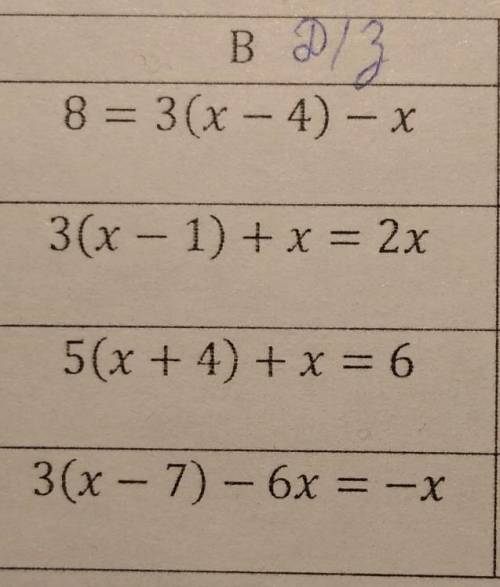 В Д/З
8 = 3(x − 4) − x
3(x − 1) + x = 2x
5(x + 4) + x = 6
3(x − 7) − 6x = −x